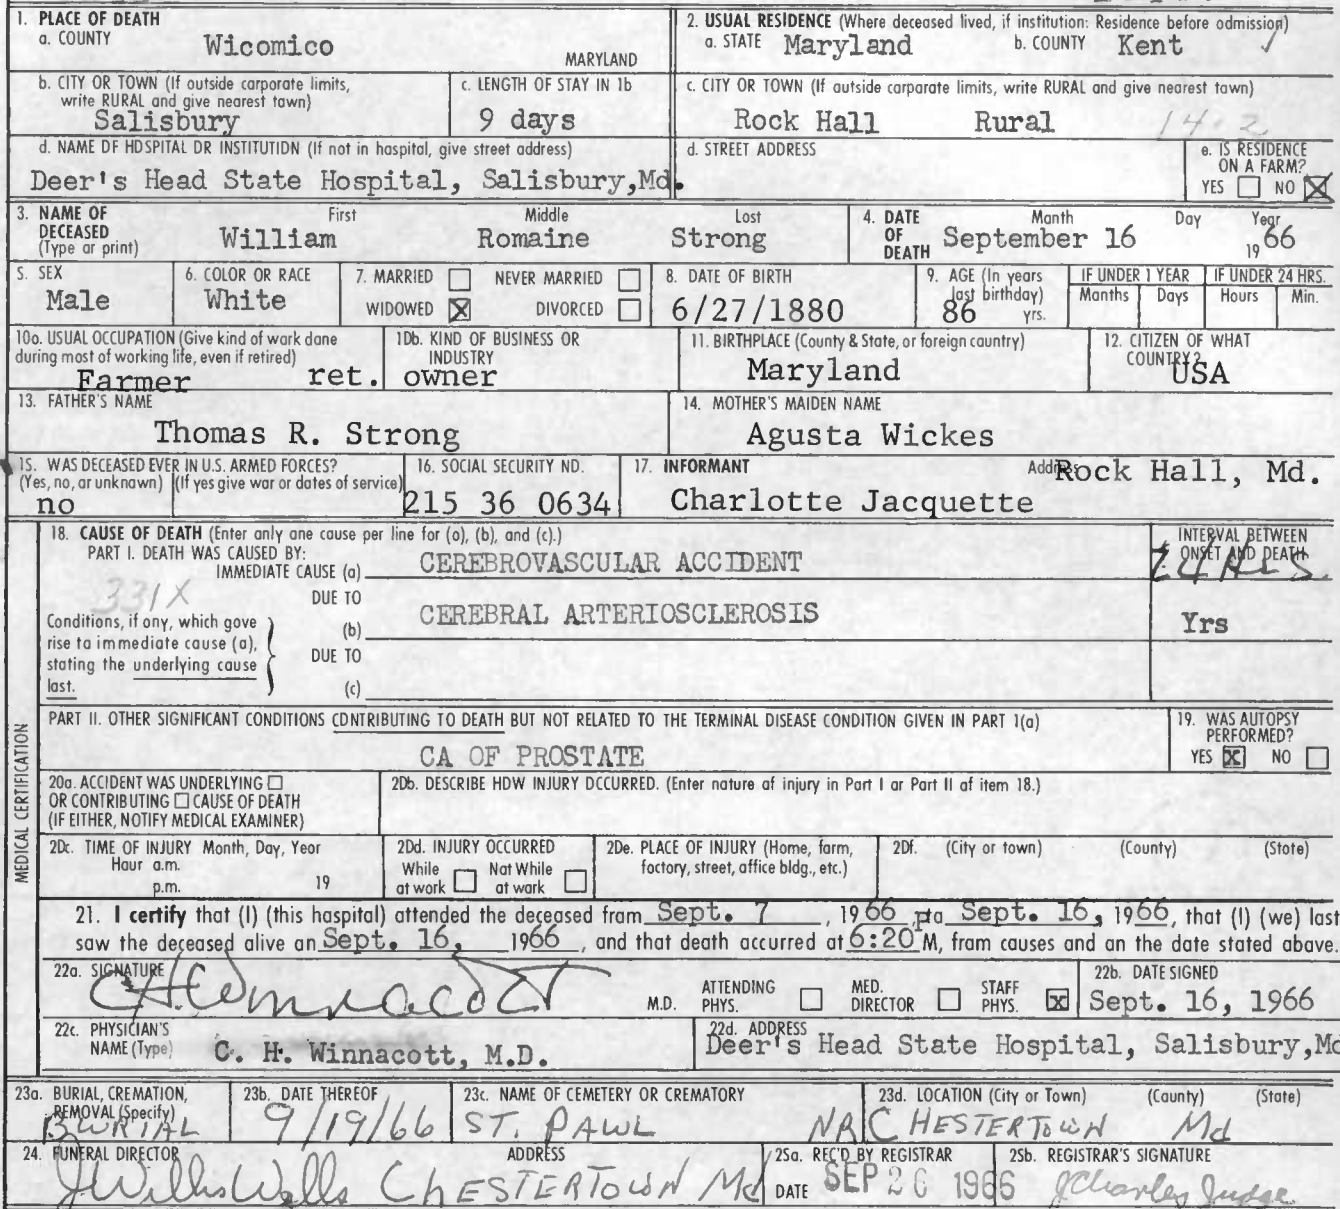 1. PLACE OF DEATH
a. COUNTY Wicomico MARYLAND
2. USUAL RESIDENCE (Where deceased lived, if institution: Residence before admission)
a. STATE Maryland b. COUNTY Kent
b. CITY OR TOWN (If outside corporate limits, write RURAL and give nearest town)
Salisbury
c. LENGTH OF STAY IN 1b
9 days
c. CITY OR TOWN (If outside corporate limits, write RURAL and give nearest town)
Rock Hall Rural 14-2
d. NAME OF HOSPITAL OR INSTITUTION (If not in hospital, give street address)
Deer's Head State Hospital, Salisbury, Md.
d. STREET ADDRESS
e. IS RESIDENCE ON A FARM?
YES NO X
3. NAME OF DECEASED (Type or print)
First Middle Last
William Romaine Strong
4. DATE OF DEATH
Month Day Year
September 16 1966
5. SEX
Male
6. COLOR OR RACE
White
7. MARRIED NEVER MARRIED
WIDOWED X DIVORCED
8. DATE OF BIRTH
6/27/1880
9. AGE (In years last birthday)
86 yrs.
IF UNDER 1 YEAR
Months Days
IF UNDER 24 HRS.
Hours Min.
10a. USUAL OCCUPATION (Give kind of work done during most of working life, even if retired)
Farmer ret.
10b. KIND OF BUSINESS OR INDUSTRY
owner
11. BIRTHPLACE (County & State, or foreign country)
Maryland
12. CITIZEN OF WHAT COUNTRY?
USA
13. FATHER'S NAME
Thomas R. Strong
14. MOTHER'S MAIDEN NAME
Agusta Wickes
15. WAS DECEASED EVER IN U.S. ARMED FORCES?
(Yes, no, or unknown) (If yes give war or dates of service)
no
16. SOCIAL SECURITY NO.
215 36 0634
17. INFORMANT Address
Charlotte Jacquette Rock Hall, Md.
MEDICAL CERTIFICATION
18. CAUSE OF DEATH (Enter only one cause per line for (a), (b), and (c).)
PART I. DEATH WAS CAUSED BY:
IMMEDIATE CAUSE (a) CEREBROVASCULAR ACCIDENT
INTERVAL BETWEEN ONSET AND DEATH
331X
DUE TO
Conditions, if any, which gave rise to immediate cause (a), stating the underlying cause last.
(b) CEREBRAL ARTERIOSCLEROSIS Yrs
DUE TO
(c)
PART II. OTHER SIGNIFICANT CONDITIONS CONTRIBUTING TO DEATH BUT NOT RELATED TO THE TERMINAL DISEASE CONDITION GIVEN IN PART I(a)
CA OF PROSTATE
19. WAS AUTOPSY PERFORMED?
YES X NO
20a. ACCIDENT WAS UNDERLYING
OR CONTRIBUTING CAUSE OF DEATH
(IF EITHER, NOTIFY MEDICAL EXAMINER)
20b. DESCRIBE HOW INJURY OCCURRED. (Enter nature of injury in Part I or Part II of item 18.)
20c. TIME OF INJURY Month, Day, Year
Hour a.m.
p.m. 19
20d. INJURY OCCURRED
While at work Not While at work
20e. PLACE OF INJURY (Home, farm, factory, street, office bldg., etc.)
20f. (City or town) (County) (State)
21. I certify that (I) (this hospital) attended the deceased from Sept. 7, 1966, to Sept. 16, 1966, that (I) (we) last
saw the deceased alive on Sept. 16, 1966, and that death occurred at 6:20 p M, from causes and on the date stated above.
22a. SIGNATURE
CHWinnacott M.D.
ATTENDING PHYS. MED. DIRECTOR STAFF PHYS. X
22b. DATE SIGNED
Sept. 16, 1966
22c. PHYSICIAN'S NAME (Type) C. H. Winnacott, M.D.
22d. ADDRESS
Deer's Head State Hospital, Salisbury, Md
23a. BURIAL, CREMATION, REMOVAL (Specify)
BURIAL
23b. DATE THEREOF
9/19/66
23c. NAME OF CEMETERY OR CREMATORY
ST. PAUL
23d. LOCATION (City or Town) (County) (State)
NR CHESTERTOWN Md
24. FUNERAL DIRECTOR ADDRESS
J. Willis Wells CHESTERTOWN Md
25a. REC'D BY REGISTRAR
DATE SEP 26 1966
25b. REGISTRAR'S SIGNATURE
J Charles Judge